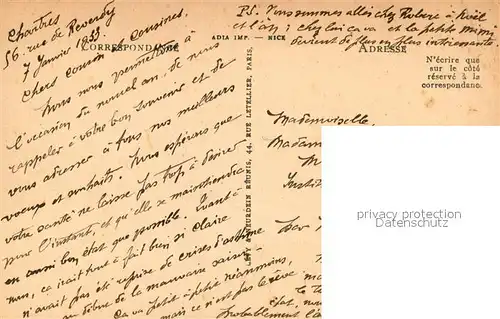 Chartres
56, rue de Reverdy
7 Janvier 1933.
Chers cousin et cousines,
Nous nous permettons à
l'occasion du nouvel an, de nous
rappeler à votre bon souvenir et de
vous adresser tous nos meilleurs
voeux et souhaits. Nous espérons que
votre santé ne laisse pas trop à désirer
pour l'instant, et qu'elle se maintiendra
en aussi bon état que possible. Quant à
nous, ça irait tout à fait bien si Claire
n'avait pas été reprise de crises d'asthme
au début de la mauvaise saison
Ça va petit à petit néanmoins,
mais ce n'est pas le rêve.
Probablement
P.S. Nous sommes allés chez Robert à Noël
et l'an ; chez lui ça va et la petite Mimi
devient de plus en plus intéressante
CORRESPONDANCE
ADIA IMP. - NICE
ADRESSE
N'écrire que
sur le côté
réservé à la
correspondance.
LEVY & NEURDEIN RÉUNIS, 44, RUE LETELLIER, PARIS,
Mademoiselle,
Madame
privacy protection
privacy protection